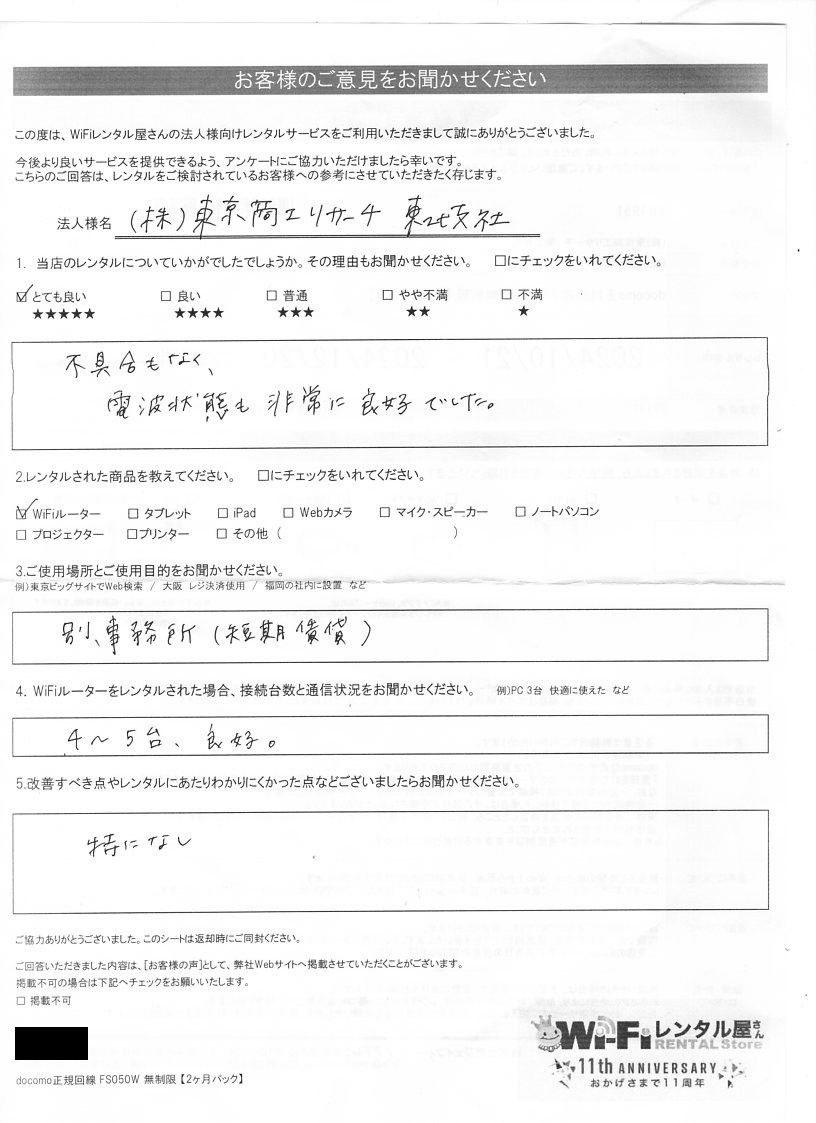 お客様のご意見をお聞かせください
この度は、WiFiレンタル屋さんの法人様向けレンタルサービスをご利用いただきまして誠にありがとうございました。
今後より良いサービスを提供できるよう、アンケートにご協力いただけましたら幸いです。
こちらのご回答は、レンタルをご検討されているお客様への参考にさせていただきたく存じます。
法人様名 (株)東京商工リサーチ 東北支社
1. 当店のレンタルについていかがでしたでしょうか。その理由もお聞かせください。 □にチェックをいれてください。
☑ とても良い □ 良い □ 普通 □ やや不満 □ 不満
★★★★★ ★★★★ ★★★ ★★ ★
不具合もなく、
電波状態も非常に良好でした。
2.レンタルされた商品を教えてください。 □にチェックをいれてください。
☑ WiFiルーター □ タブレット □ iPad □ Webカメラ □ マイク・スピーカー □ ノートパソコン
□ プロジェクター □プリンター □ その他 ( )
3.ご使用場所とご使用目的をお聞かせください。
例)東京ビッグサイトでWeb検索 / 大阪 レジ決済使用 / 福岡の社内に設置 など
別事務所(短期賃貸)
4. WiFiルーターをレンタルされた場合、接続台数と通信状況をお聞かせください。 例)PC 3台 快適に使えた など
4~5台、良好。
5.改善すべき点やレンタルにあたりわかりにくかった点などございましたらお聞かせください。
特になし
ご協力ありがとうございました。このシートは返却時にご同封ください。
ご回答いただきました内容は、[お客様の声]として、弊社Webサイトへ掲載させていただくことがございます。
掲載不可の場合は下記へチェックをお願いいたします。
□ 掲載不可
Wi-Fiレンタル屋さん
RENTAL Store
11th ANNIVERSARY
おかげさまで11周年
docomo正規回線 FS050W 無制限【2ヶ月パック】